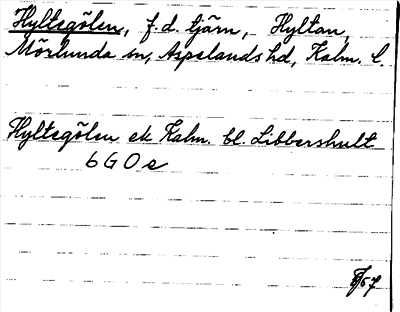 Hyltegölen, f.d. tjärn, Hyltan,
Mörlunda sn, Aspelands hd, Kalm. l.
Hyltegölen ek Kalm. bl. Libbershult
6 G 0 e